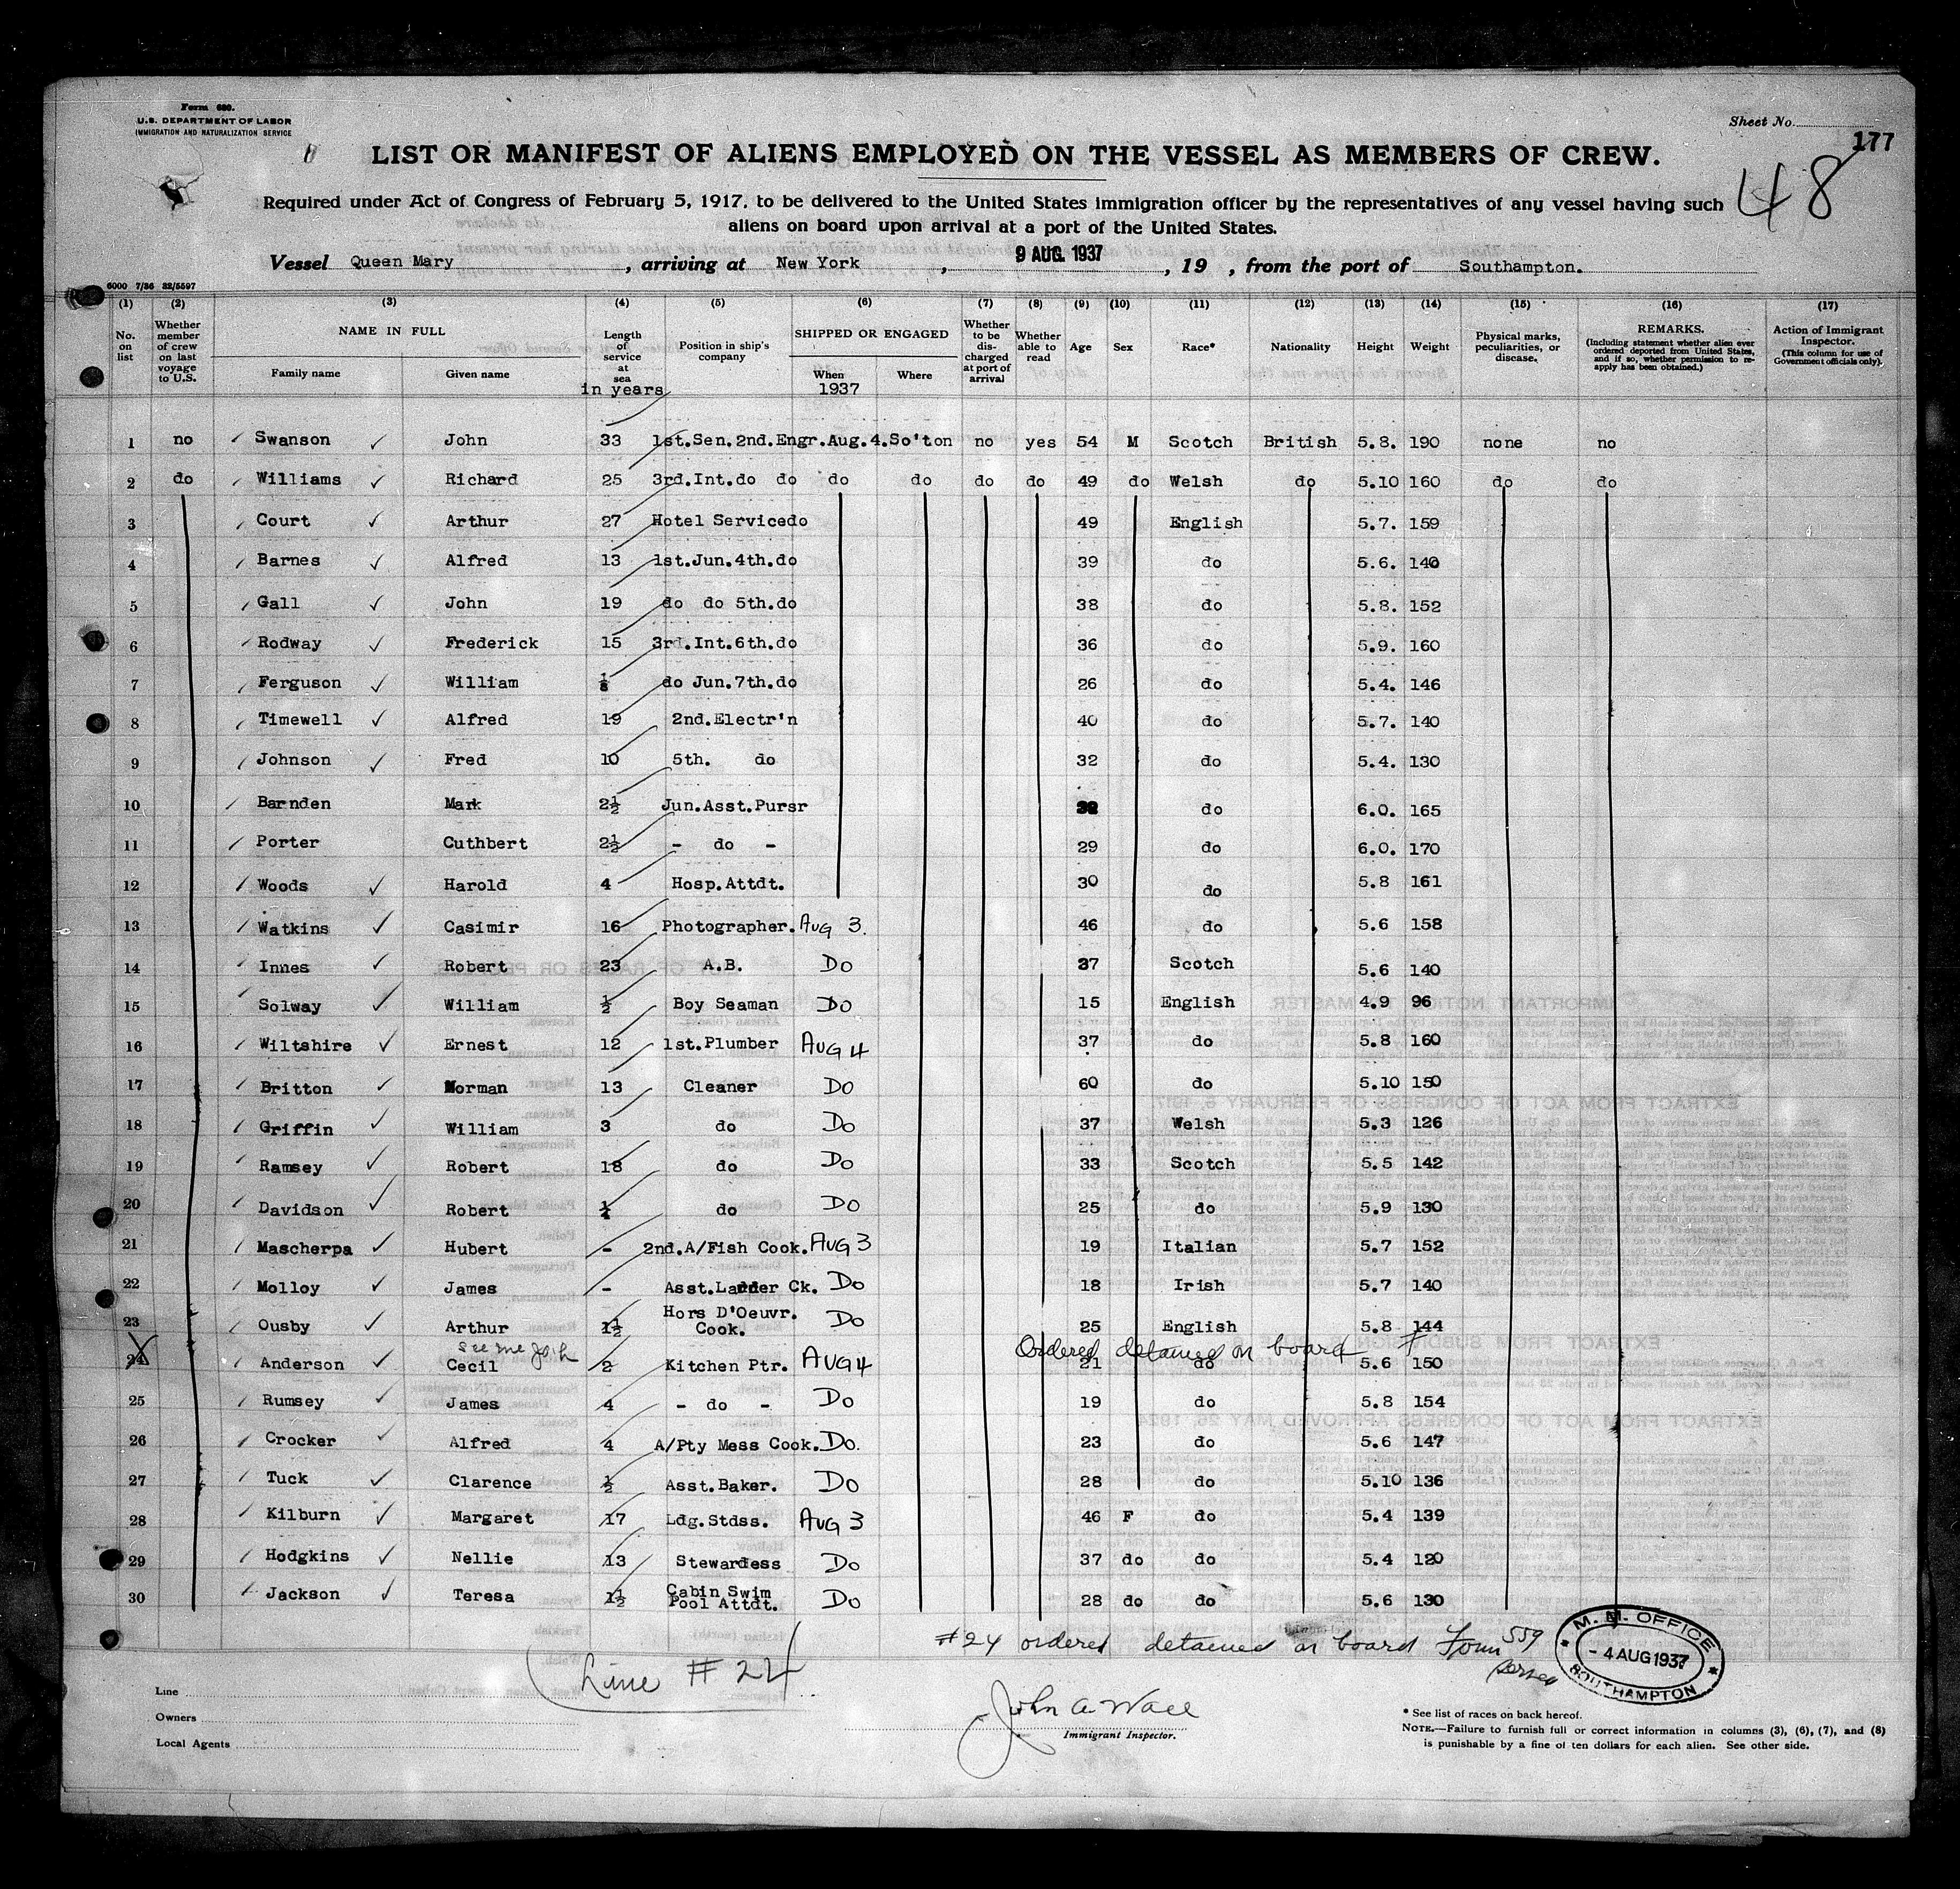 Form 680.
U.S. DEPARTMENT OF LABOR
IMMIGRATION AND NATURALIZATION SERVICE
Sheet No.
177
48
LIST OR MANIFEST OF ALIENS EMPLOYED ON THE VESSEL AS MEMBERS OF CREW.
Required under Act of Congress of February 5, 1917, to be delivered to the United States immigration officer by the representatives of any vessel having such
aliens on board upon arrival at a port of the United States.
Vessel Queen Mary, arriving at New York, 9 AUG. 1937, 19 , from the port of Southampton.
6000 7/36 32/5597
(1) (2) (3) (4) (5) (6) (7) (8) (9) (10) (11) (12) (13) (14) (15) (16) (17)
No. on list Whether member of crew on last voyage to U.S. NAME IN FULL Family name Given name Length of service at sea in years Position in ship's company SHIPPED OR ENGAGED When 1937 Where Whether to be discharged at port of arrival Whether able to read Age Sex Race* Nationality Height Weight Physical marks, peculiarities, or disease. REMARKS. (Including statement whether alien ever ordered deported from United States, and if so, whether permission to reapply has been obtained.) Action of Immigrant Inspector. (This column for use of Government officials only).
1 no Swanson John 33 1st.Sen.2nd.Engr.Aug.4.So'ton no yes 54 M Scotch British 5.8. 190 none no
2 do Williams Richard 25 3rd.Int.do do do do do do 49 do Welsh do 5.10 160 do do
3 Court Arthur 27 Hotel Servicedo 49 English 5.7. 159
4 Barnes Alfred 13 1st.Jun.4th.do 39 do 5.6. 140
5 Gall John 19 do do 5th.do 38 do 5.8. 152
6 Rodway Frederick 15 3rd.Int.6th.do 36 do 5.9. 160
7 Ferguson William do Jun.7th.do 26 do 5.4. 146
8 Timewell Alfred 19 2nd.Electr'n 40 do 5.7. 140
9 Johnson Fred 10 5th. do 32 do 5.4. 130
10 Barnden Mark 2½ Jun.Asst.Pursr do 6.0. 165
11 Porter Cuthbert 2½ - do - 29 do 6.0. 170
12 Woods Harold 4 Hosp.Attdt. 30 do 5.8 161
13 Watkins Casimir 16 Photographer. AUG 3. 46 do 5.6 158
14 Innes Robert 23 A.B. DO 37 Scotch 5.6 140
15 Solway William ½ Boy Seaman DO 15 English 4.9 96
16 Wiltshire Ernest 12 1st.Plumber AUG 4 37 do 5.8 160
17 Britton Norman 13 Cleaner DO 60 do 5.10 150
18 Griffin William 3 do DO 37 Welsh 5.3 126
19 Ramsey Robert 18 do DO 33 Scotch 5.5 142
20 Davidson Robert do DO 25 do 5.9 130
21 Mascherpa Hubert - 2nd.A/Fish Cook. AUG 3 19 Italian 5.7 152
22 Molloy James - Asst.Ladder Ck. DO 18 Irish 5.7 140
23 Ousby Arthur 1½ Hors D'Oeuvr. Cook. DO 25 English 5.8 144
Ordered detained on board #
24 Anderson Cecil 2 Kitchen Ptr. AUG 4 21 do 5.6 150
25 Rumsey James 4 - do - DO 19 do 5.8 154
26 Crocker Alfred 4 A/Pty Mess Cook. DO. 23 do 5.6 147
27 Tuck Clarence ½ Asst.Baker. DO 28 do 5.10 136
28 Kilburn Margaret 17 Ldg.Stdss. AUG 3 46 F do 5.4 139
29 Hodgkins Nellie 13 Stewardess DO 37 do do 5.4 120
30 Jackson Teresa 1½ Cabin Swim Pool Attdt. DO 28 do do 5.6 130
#24 ordered detained on board Form 559 served
Line # 24
M. M. OFFICE
- 4 AUG 1937
SOUTHAMPTON
Line
Owners
Local Agents
John A. Wall
Immigrant Inspector.
* See list of races on back hereof.
NOTE.—Failure to furnish full or correct information in columns (3), (6), (7), and (8)
is punishable by a fine of ten dollars for each alien. See other side.